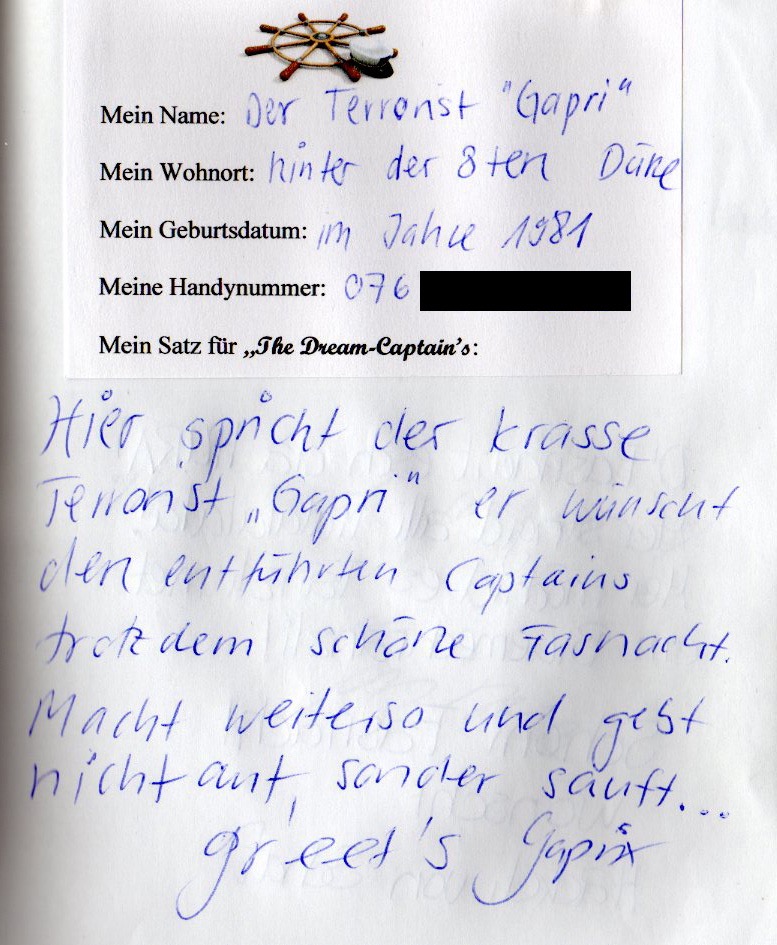 Mein Name: Der Terrorist "Gapri"
Mein Wohnort: hinter der 8ten Düne
Mein Geburtsdatum: im Jahre 1981
Meine Handynummer: 076
Mein Satz für „The Dream-Captain's:
Hier spricht der krasse
Terrorist „Gapri" er wünscht
den entführten Captains
trotzdem schöne Fasnacht.
Macht weiterso und gebt
nicht auf, sonder sauft...
greet's Gaprix